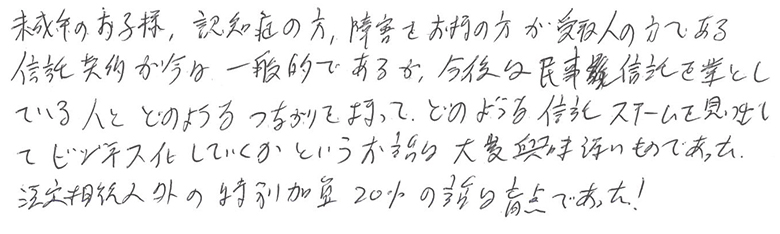 未成年のお子様, 認知症の方, 障害をお持の方が受取人の方である
信託契約が今は一般的であるが, 今後は民事信託を業とし
ている人とどのようなつながりをもって、どのような信託スキームを見い出し
てビジネス化していくかというお話は大変興味深いものであった.
法定相続人外の特別加算20%の話は盲点であった!